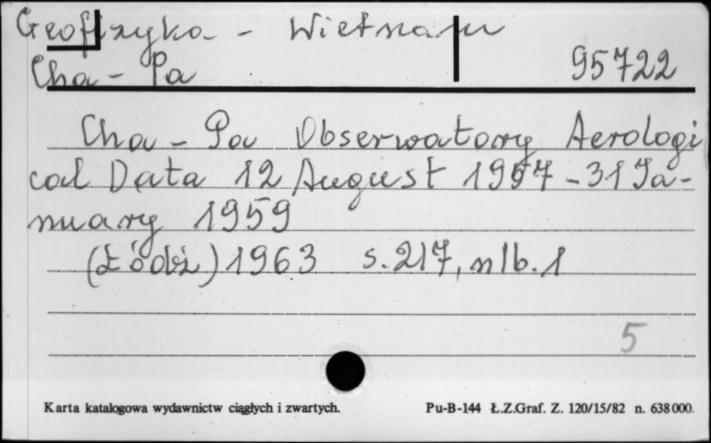 Geofizyka - Wietnam
Cha - Pa 95722
Cha - Pa Observatory Aerologi
cal Data 12 August 1957 - 31 Ja-
nuary 1959
(Łódź) 1963 s. 217, nlb. 1
5
Karta katalogowa wydawnictw ciągłych i zwartych. Pu-B-144 Ł.Z.Graf. Z. 120/15/82 n. 638000.